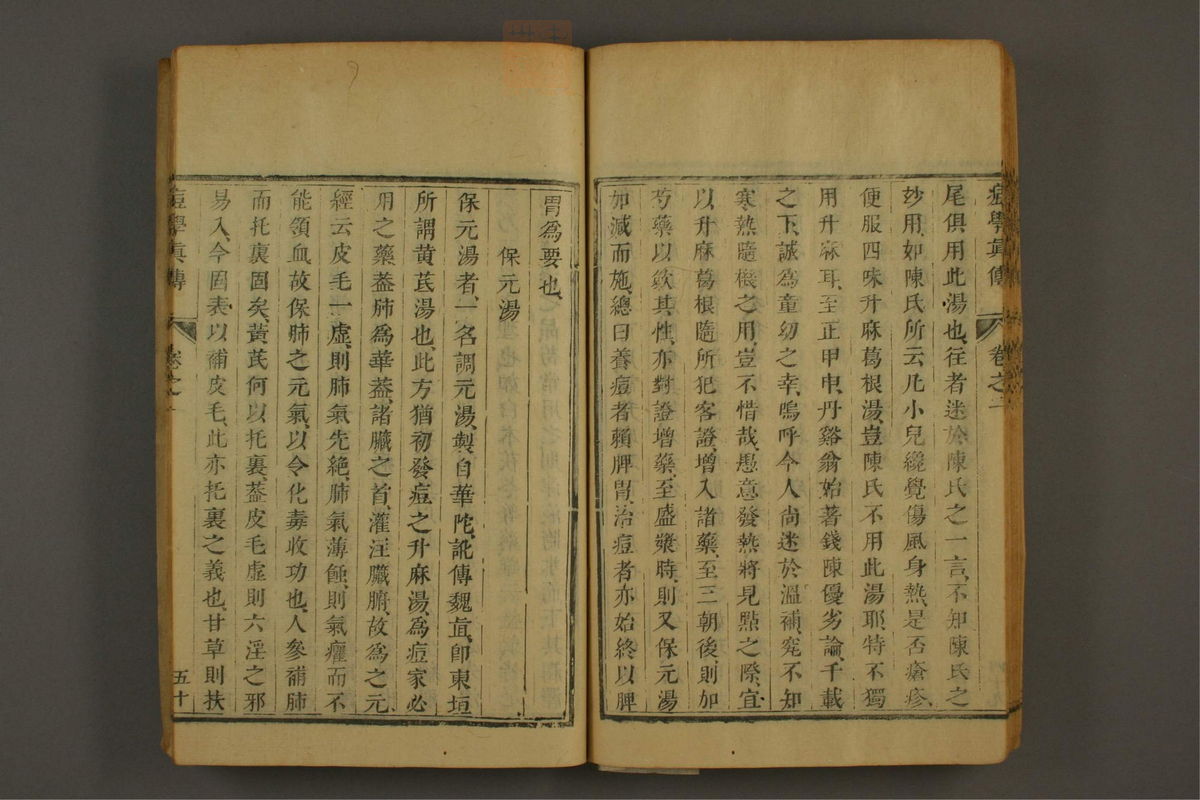 痘學眞傳 卷之二
尾俱用此湯也、往者迷於陳氏之一言、不知陳氏之
妙用、如陳氏所云、凡小兒纔覺傷風身熱、是否瘡疹、
便服四味升麻葛根湯、豈陳氏不用此湯耶、特不獨
用升麻耳、至正甲申、丹谿翁始著錢陳優劣論、千載
之下、誠爲童幼之幸、嗚呼今人尚迷於溫補、究不知
寒熱隨機之用、豈不惜哉、愚意發熱將見點之際、宜
以升麻葛根隨所犯客證、增入諸藥、至三朝後、則加
芍藥以斂其性、亦對證增藥、至盛漿時、則又保元湯
加減而施、總曰養痘者賴脾胃、治痘者亦始終以脾
胃爲要也、
保元湯
保元湯者、一名調元湯、製自華陀、訛傳魏直、卽東垣
所謂黄芪湯也、此方猶初發痘之升麻湯、爲痘家必
用之藥、蓋肺爲華蓋、諸臟之首、灌注臟腑、故爲之元
經云皮毛一虛、則肺氣先絶、肺氣薄蝕、則氣癰而不
能領血、故保肺之元氣、以令化毒收功也、人參補肺
而托裏固矣、黃芪何以托裏、蓋皮毛虛則六淫之邪
易入、今固表以補皮毛、此亦托裏之義也、甘草則扶
痘學眞傳 卷之 五十